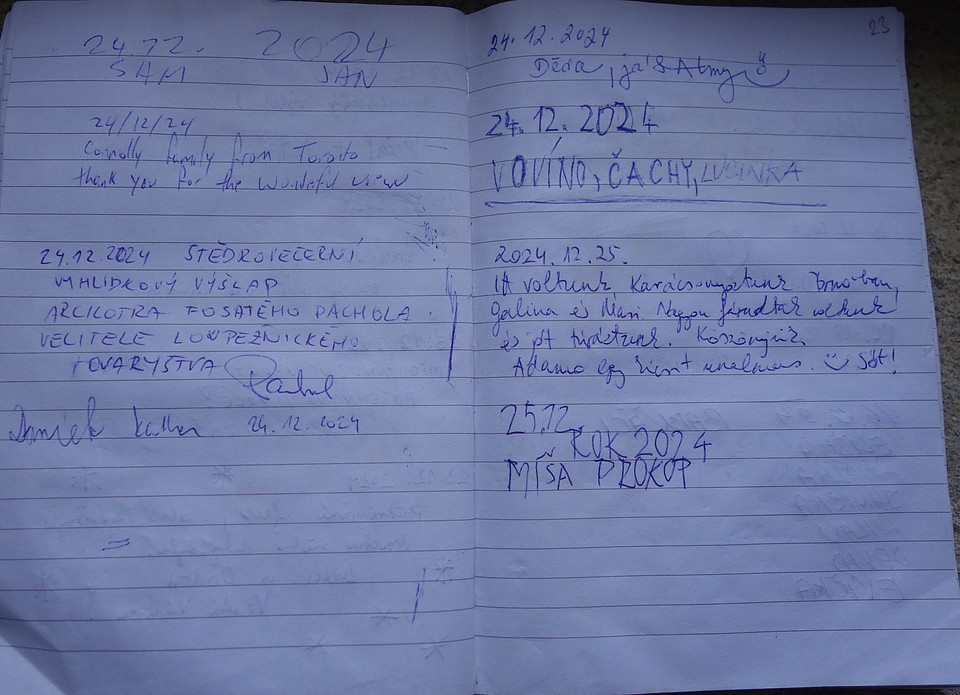 24.12. 2024
SAM JAN
24/12/24
Connolly family from Toronto
thank you for the wonderful view
24.12.2024 ŠTĚDROVEČERNÍ
VYHLÍDKOVÝ VÝŠLAP
ARCIKOTRA FOSATÉHO PACHOLA
VELITELE LOUPEŽNICKÉHO
TOVARYŠTVA
24.12.2024
23
24.12.2024
Děda, já & Atmy
24.12.2024
VOVÍNO, ČACHY,
2024.12.25.
Itt voltunk Karácsonyoztunk Brnoban,
Galina és Mári Nagyon fáradtak voltunk
és itt túráztunk. Köszönjük.
Adamo egy kicsit unalmas. Sőt!
25.12.
ROK 2024
MÍŠA PROKOP